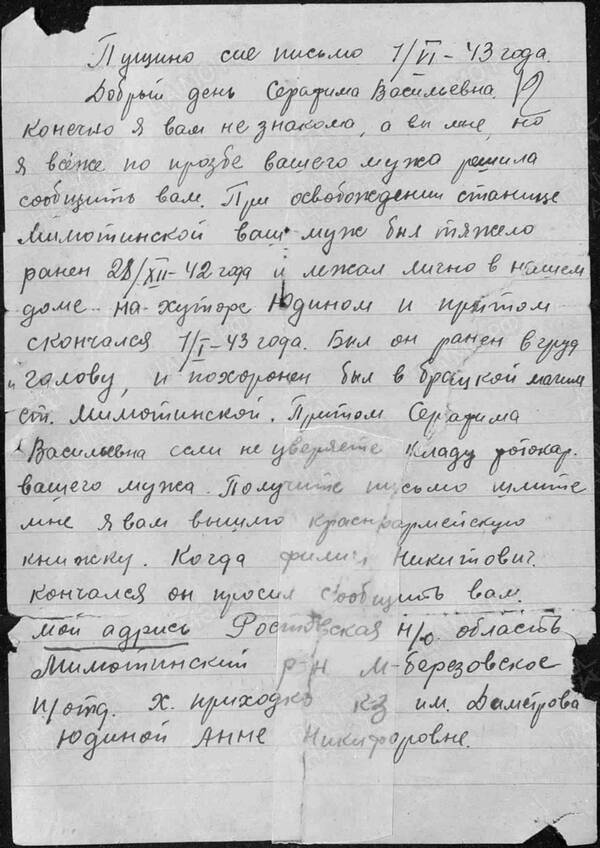 Пущино сие письмо 1/VI-43 года.
Добрый день Серафима Васильевна.
Конечно я вам не знакома, а вы мне, но
я всёже по прозбе вашего мужа решила
сообщить вам. При освобождении станице
Милютинской ваш муж был тяжело
ранен 28/XII-42 года и лежал лично в нашем
доме на хуторе Юдином и притом
скончался 1/I-43 года. Был он ранен в груд
и голову, и похоронен был в брацкой магил
ст. Милютинской. Притом Серафима
Васильевна если не уверяете кладу фотокар.
вашего мужа. Получите письмо шлите
мне я вам вышлю красноармейскую
книжку. Когда Никитович.
кончался он просил сообщить вам.
мой адрись Ростовская н/о. область
Милютинский р-н М-березовское
п/отд. х. приходко кз им. Дамитрова
Юдиной Анне Никифоровне.